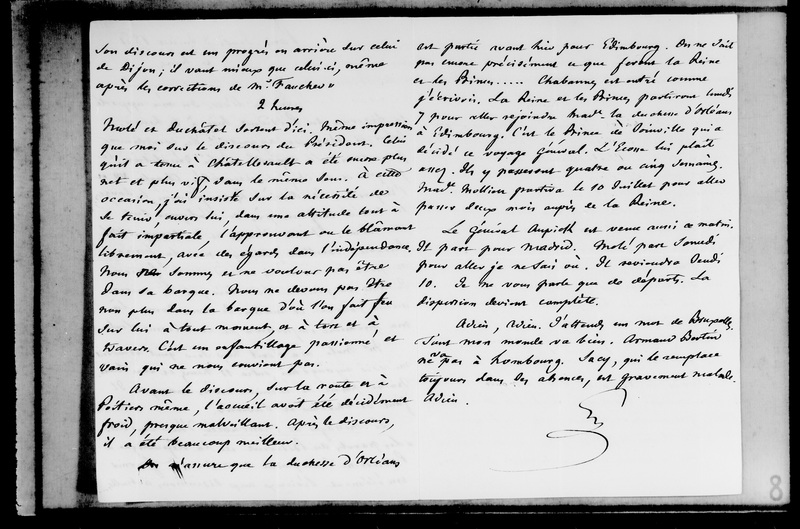 son discours est un progrès en arrière sur celui
de Dijon; il vaut mieux que celui-ci, même
après les corrections de Mr. Faucher"
2 heures
Molé et Duchâtel sortent d'ici. Même impression
que moi sur le discours du Président. Celui
qu'il a tenu à Châtellerault a été encore plus
net et plus vif, dans le même sens. À cette
occasion, j'ai insisté sur la nécessité de
se tenir, envers lui, dans une attitude tout à
fait impartiale, l'approuvant ou le blâmant
librement, avec des égards dans l'indépendance.
Nous sommes et ne voulons pas être
dans sa barque. Nous ne devons pas être
non plus dans la barque d'où l'on fait feu
sur lui à tout moment, et à tort et à
travers. C'est un enfantillage passionné, et
vain qui ne nous convient pas.
Avant le discours, sur la route et à
Poitiers même, l'accueil avait été décidément
froid, presque malveillant. Après le discours,
il a été beaucoup meilleur.
On m'assure que la duchesse d'Orléans
est partie avant hier pour Edimbourg. On ne sait
pas encore précisément ce que feront la Reine
et les Princes..... Chabannes est entré comme
j'écrivois. La Reine et les Princes partiront lundi
7 pour aller rejoindre Made. la duchesse d'Orléans
à Edimbourg. C'est le Prince de Joinville qui a
décidé ce voyage général. L'Ecosse lui plaît
assez. Ils y passeront quatre ou cinq semaines.
Made. Mollien partira le 10 Juillet pour aller
passer deux mois auprès de la Reine.
Le général Aupick est venu aussi ce matin.
Il part pour Madrid. Molé part Samedi
pour aller je ne sais où. Il reviendra Jeudi
10. Je ne vous parle que de départs. La
dispersion devient complète.
Adieu, Adieu. J'attends un mot de Bruxelles.
Tout mon monde va bien. Armand Bertin
ne va pas à hombourg. Sacy, qui le remplace
toujours dans ses absences, est gravement malade.
Adieu.
8